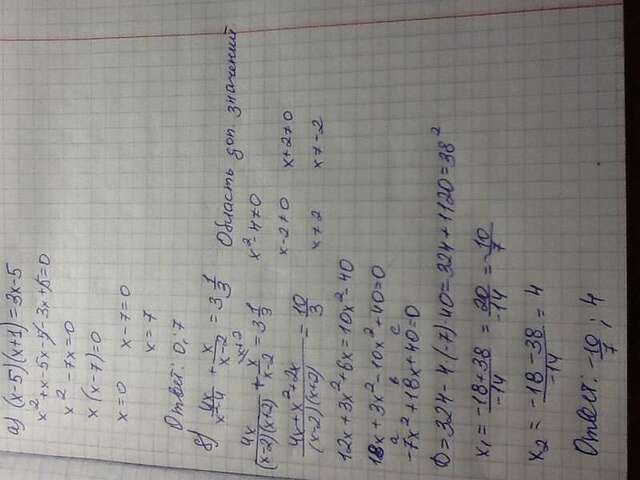 а) (x-5)(x+1)=3x-5
x²+x-5x-5-3x+5=0
x²-7x=0
x(x-7)=0
x=0 x-7=0
x=7
Ответ: 0, 7
4x/x²-4 + x/x-2 = 3 1/3
Область доп. значений
4x/(x-2)(x+2) + x/x-2 = 3 1/3
x+2
x²-4≠0
4x+x²+2x/(x-2)(x+2) = 10/3
x-2≠0 x+2≠0
x≠2 x≠-2
12x+3x²+6x=10x²-40
18x+3x²-10x²+40=0
-7x²+18x+40=0
a b c
D=324-4(-7)40=324+1120=38²
x₁=-18+38/-14=20/-14=-10/7
x₂=-18-38/-14=4
Ответ: -10/7; 4